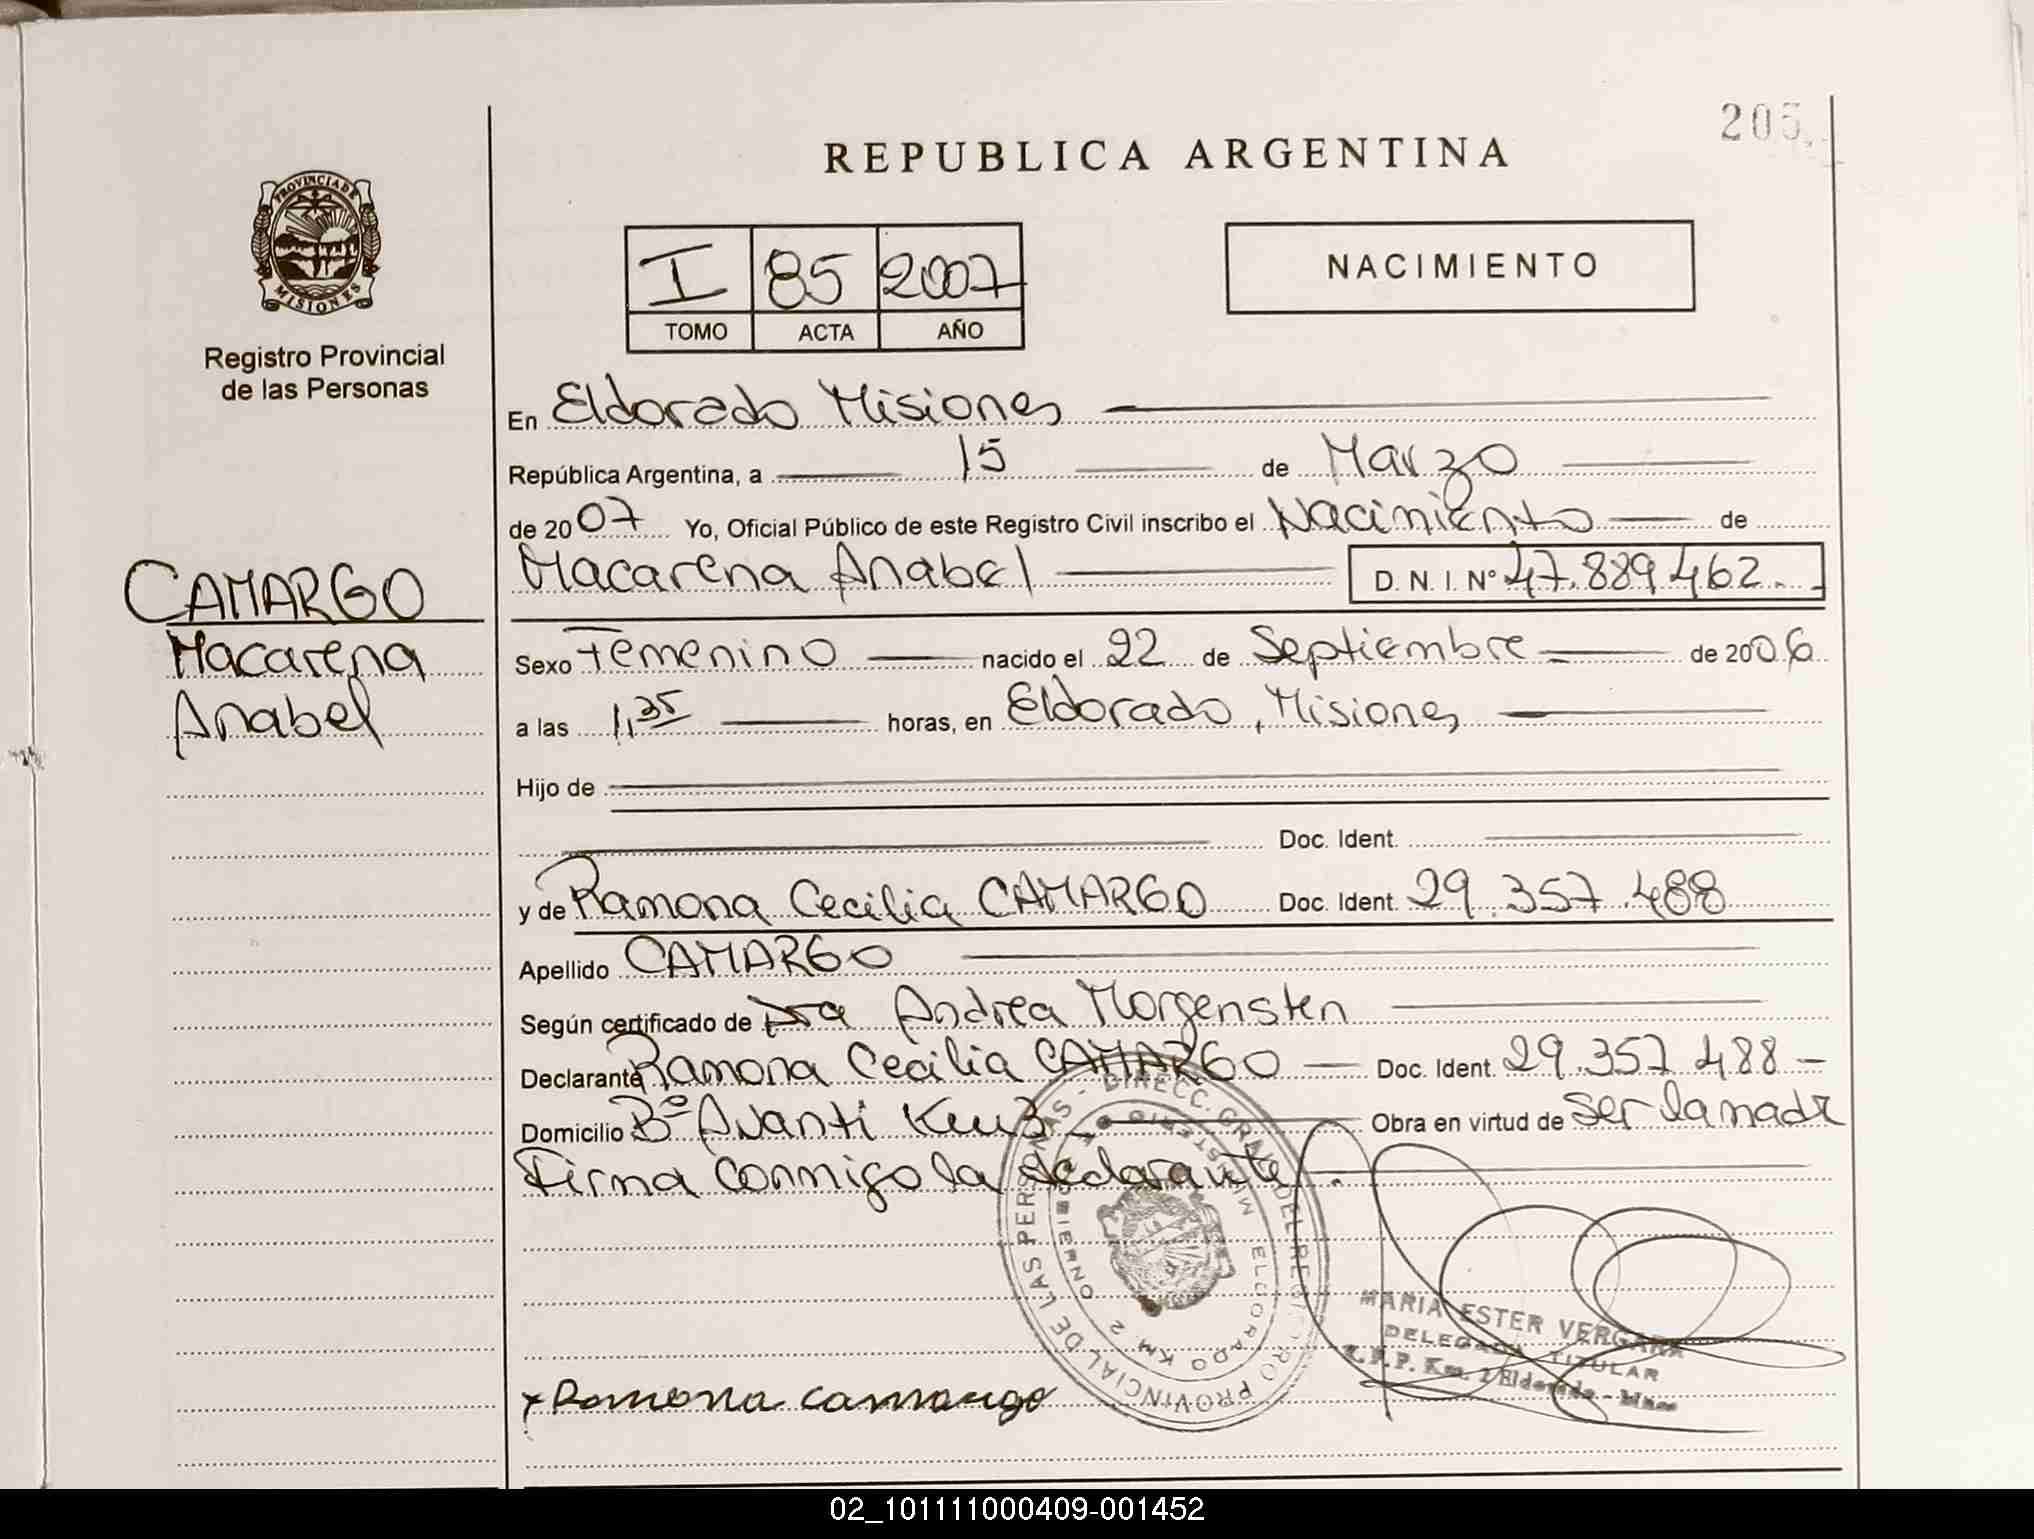 205
REPUBLICA ARGENTINA
PROVINCIA DE
MISIONES
Registro Provincial
de las Personas
I 85 2007
TOMO ACTA AÑO
NACIMIENTO
En Eldorado Misiones
República Argentina, a 15 de Marzo
de 2007 Yo, Oficial Público de este Registro Civil inscribo el Nacimiento de
Macarena Anabel D. N. I. N° 47.889.462
CAMARGO
Macarena
Anabel
Sexo Femenino nacido el 22 de Septiembre de 2006
a las 1,35 horas, en Eldorado, Misiones
Hijo de
Doc. Ident.
y de Ramona Cecilia CAMARGO Doc. Ident. 29.357.488
Apellido CAMARGO
Según certificado de Dra Andrea Morgensten
Declarante Ramona Cecilia CAMARGO Doc. Ident. 29.357.488
Domicilio Bº Avanti Obra en virtud de ser la madre
Firma conmigo la declarante.
DIRECC. GRAL. DEL REGISTRO PROVINCIAL DE LAS PERSONAS
MINISTERIO DE GOBIERNO
ELDORADO KM 2
MARIA ESTER VERGARA
DELEGADA TITULAR
R.P.P. Km. 2 Eldorado - Mnes
x Ramona camargo
02_101111000409-001452